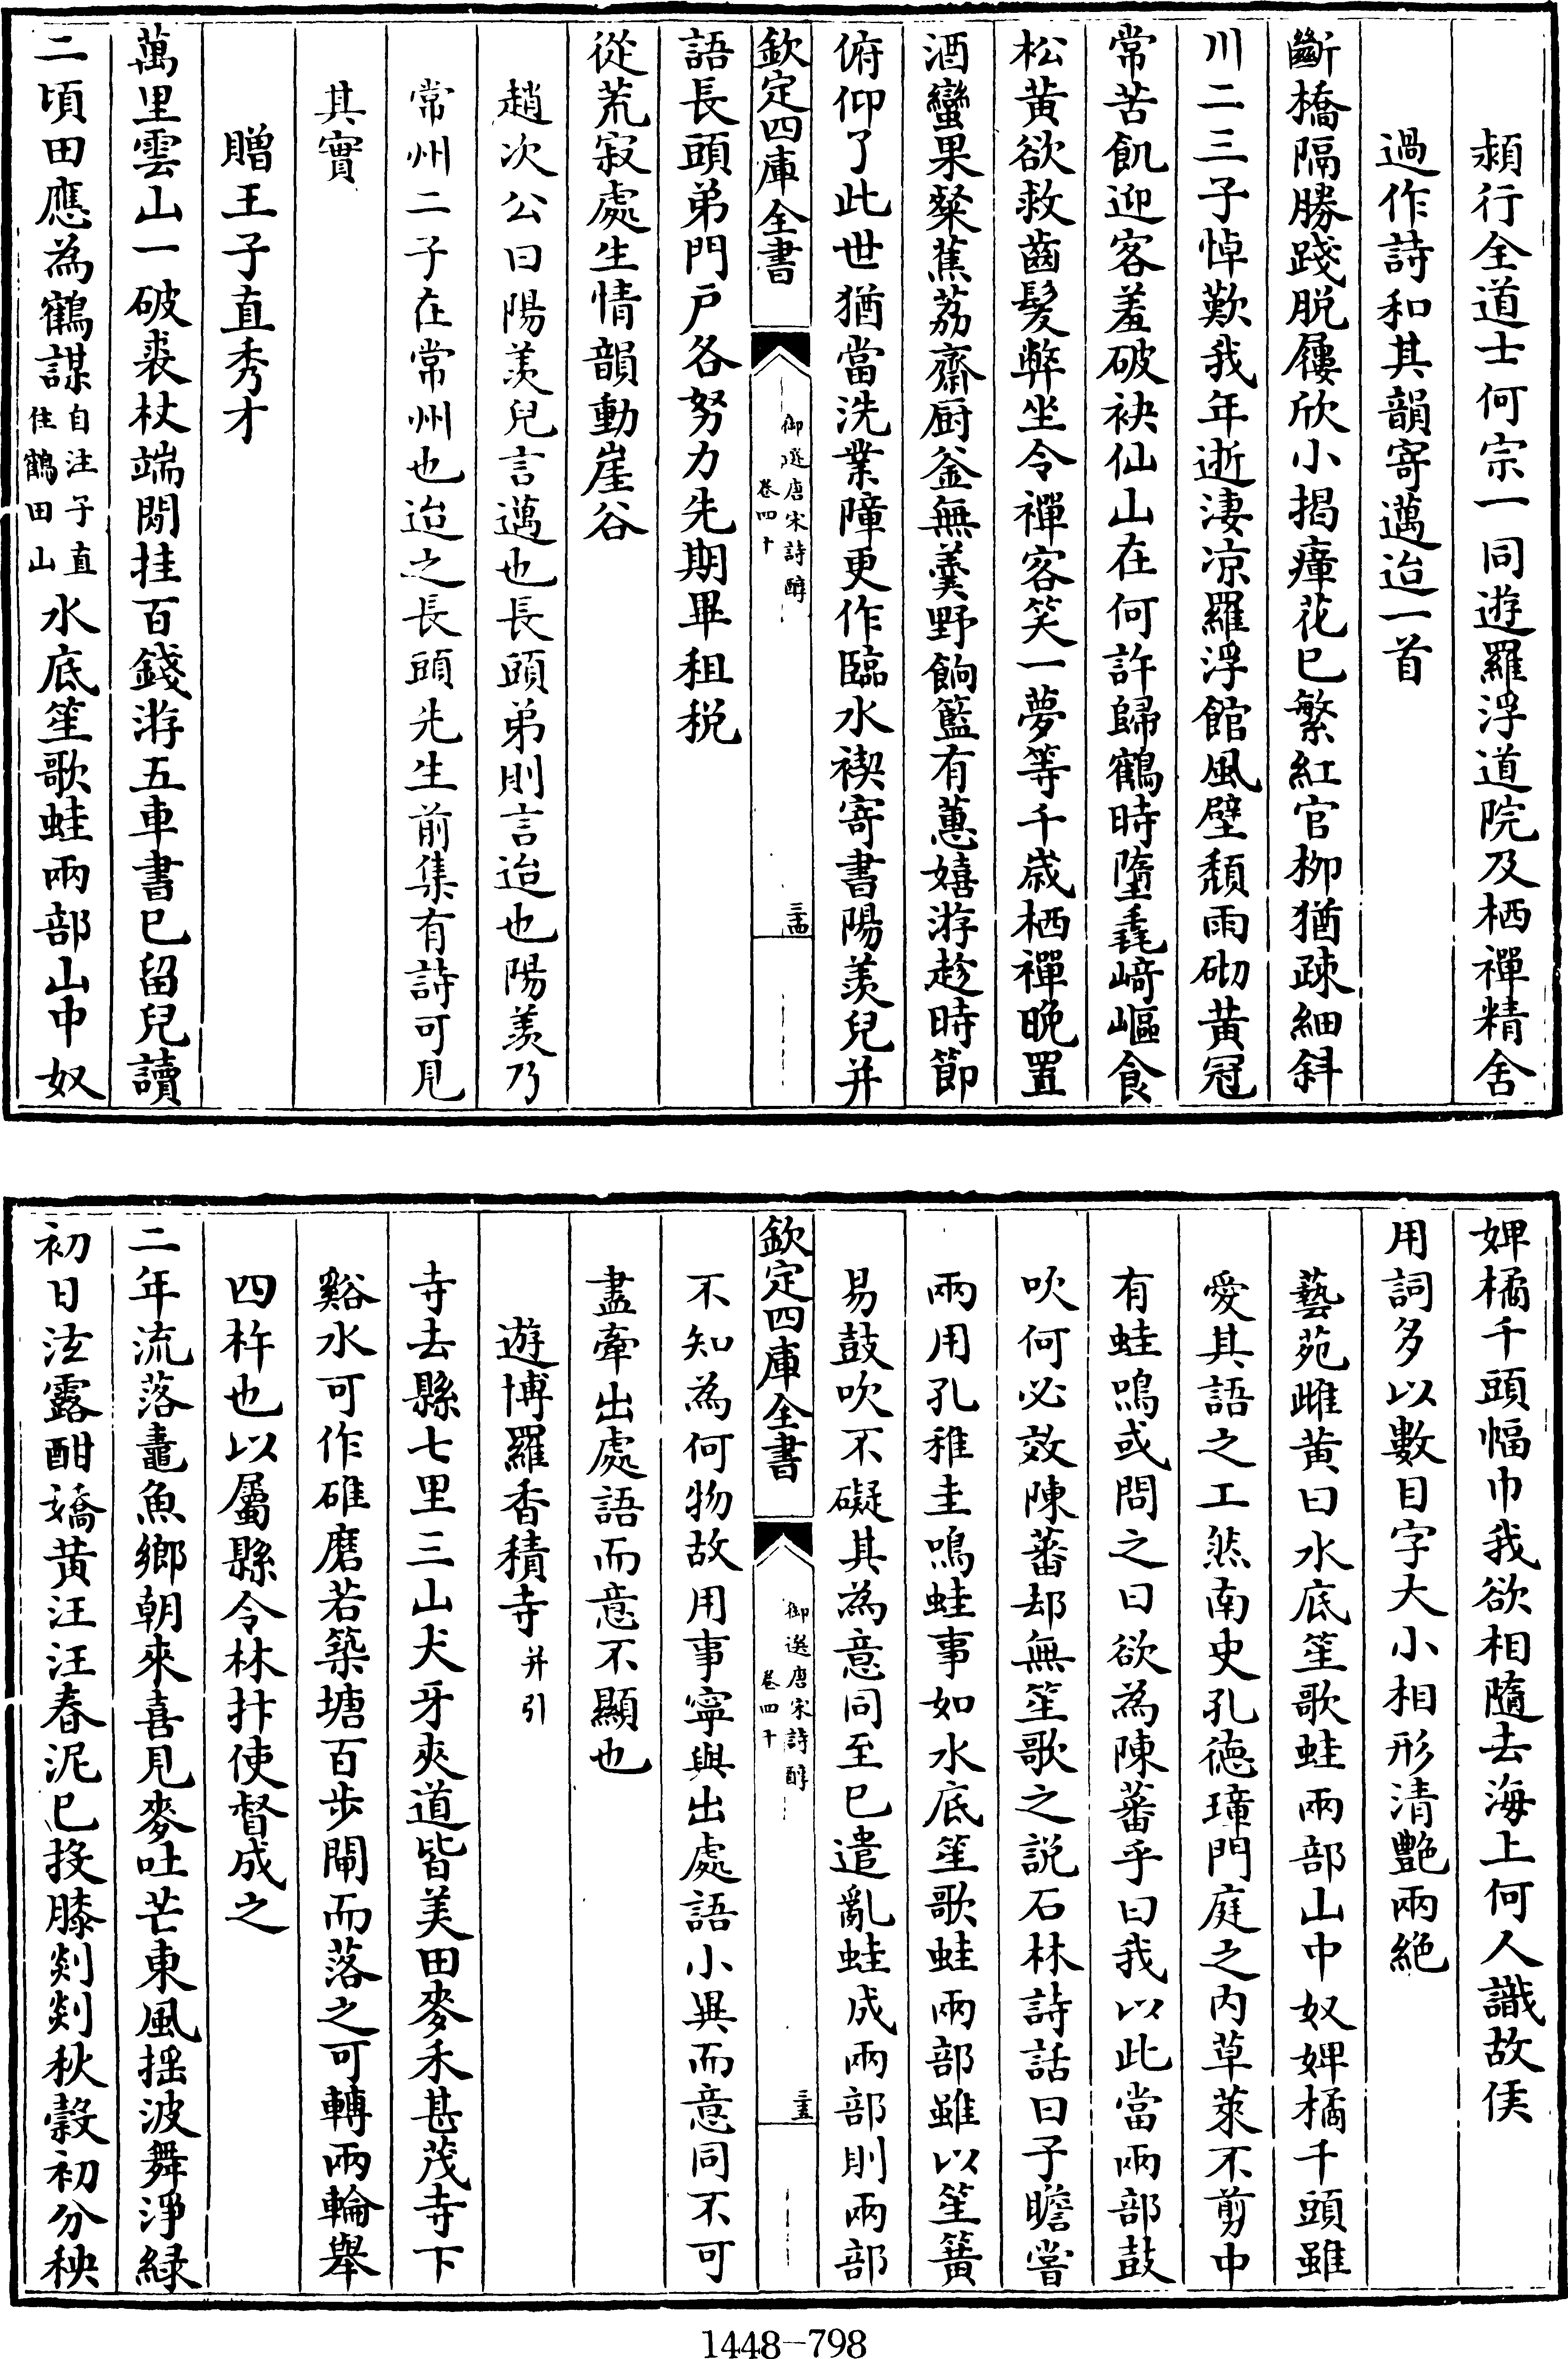 頴行全道士何宗一同遊羅浮道院及栖禪精舍
過作詩和其韻寄邁迨一首
斷橋隔勝踐脱屨欣小揭瘴花已繁紅官柳猶疎細斜
川二三子悼歎我年逝淒凉羅浮館風壁頽雨砌黄冠
常苦飢迎客羞破袂仙山在何許歸鶴時墮毳崎嶇食
松黄欲救齒髮弊坐令禪客笑一夢等千歳栖禪晚置
酒蠻果粲蕉荔齋厨釡無羹野餉籃有蕙嬉游趁時節
俯仰了此世猶當洗業障更作臨水禊寄書陽羨兒并
欽定四庫全書
御選唐宋詩醇
卷四十
三十四
語長頭弟門戸各努力先期畢租税
從荒寂處生情韻動崖谷
趙次公曰陽羨兒言邁也長頭弟則言迨也陽羨乃
常州二子在常州也迨之長頭先生前集有詩可見
其實
贈王子直秀才
萬里雲山一破裘杖端閒挂百錢游五車書已留兒讀
二頃田應為鶴謀自注子直住鶴田山水底笙歌蛙兩部山中奴
婢橘千頭幅巾我欲相隨去海上何人識故侯
用詞多以數目字大小相形清艶兩絶
藝苑雌黄曰水底笙歌蛙兩部山中奴婢橘千頭雖
愛其語之工然南史孔徳璋門庭之内草萊不剪中
有蛙鳴或問之曰欲為陳蕃乎曰我以此當兩部鼓
吹何必效陳蕃却無笙歌之説石林詩話曰子瞻嘗
兩用孔稚圭鳴蛙事如水底笙歌蛙兩部雖以笙簧
易鼓吹不礙其為意同至已遣亂蛙成兩部則兩部
欽定四庫全書
御選唐宋詩醇
卷四十
三十五
不知為何物故用事寧與出處語小異而意同不可
盡牽出處語而意不顯也
遊博羅香積寺并引
寺去縣七里三山犬牙夾道皆美田麥禾甚茂寺下
谿水可作碓磨若築塘百步閘而落之可轉兩輪舉
四杵也以屬縣令林抃使督成之
二年流落鼃魚鄉朝來喜見麥吐芒東風揺波舞淨緑
初日泫露酣嬌黄汪汪春泥已投膝剡剡秋榖初分秧
1448-798